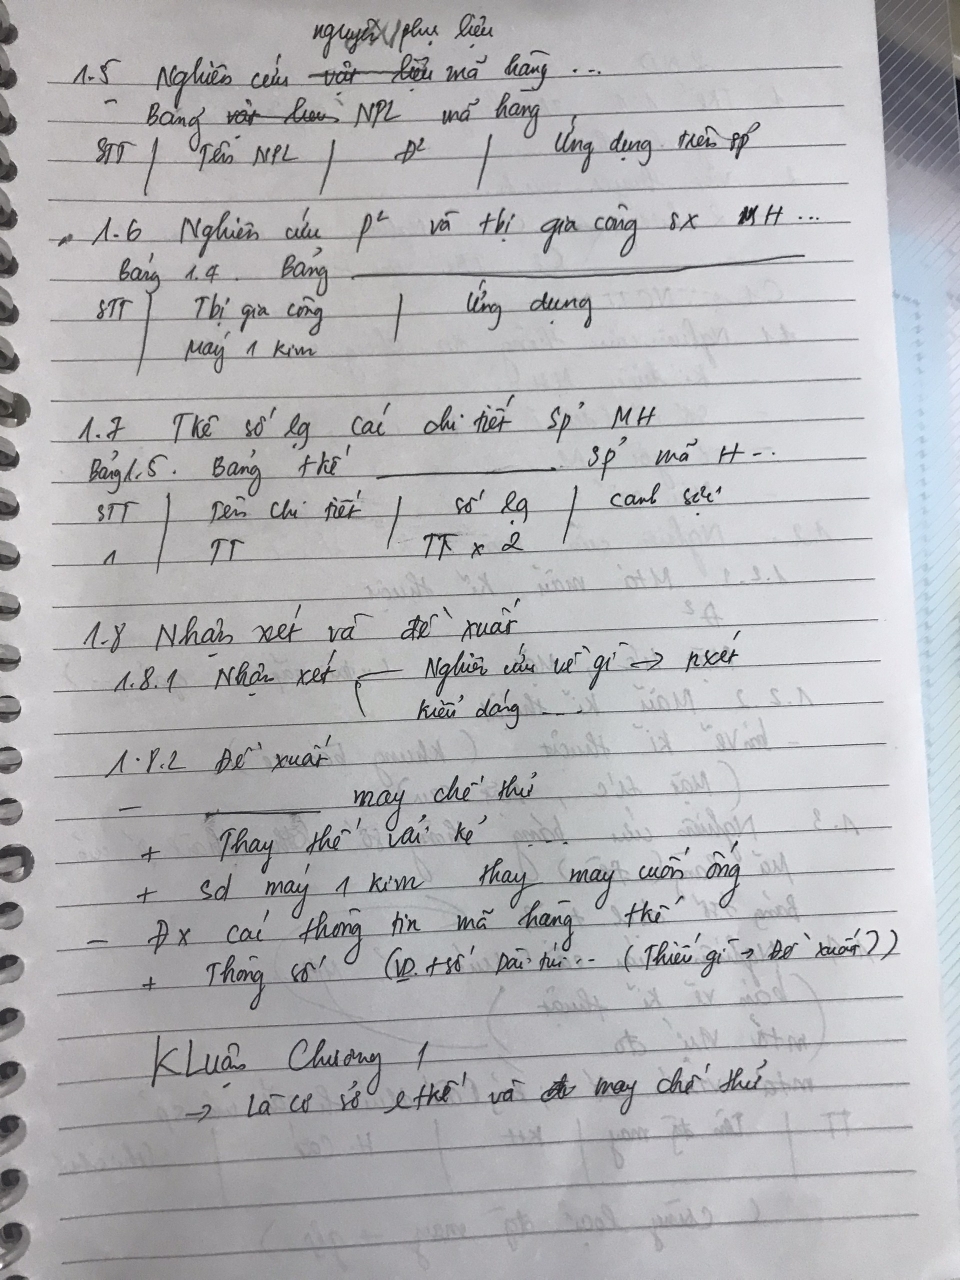 nguyên/phụ liệu
1.5 Nghiên cứu vật liệu mã hàng ...
- Bảng vật liệu NPL mã hàng
STT | Tên NPL | Đ² | Ứng dụng trên sp
1.6 Nghiên cứu P² và thbị gia công sx MH ...
Bảng 1.4. Bảng
STT | Tbị gia công | Ứng dụng
Máy 1 kim
1.7 Tkê số lg các chi tiết sp' MH
Bảng 1.5. Bảng tkê sp' mã H...
STT | Tên chi tiết | số lg | canh sợi
1 TT TT x 2
1.8 Nhận xét và đề xuất
1.8.1 Nhận xét Nghiên cứu về gì → nxét
kiểu dáng ....
1.8.2 Đề xuất
- may chế thử
+ Thay thế vải kẻ
+ sd máy 1 kim thay máy cuốn ống
- Đx các thông tin mã hàng tkế
+ Thông số (VD. t số Dài túi ... (Thiếu gì → Đề xuất))
KLuận Chương 1
→ Là cơ sở tkế và may chế thử